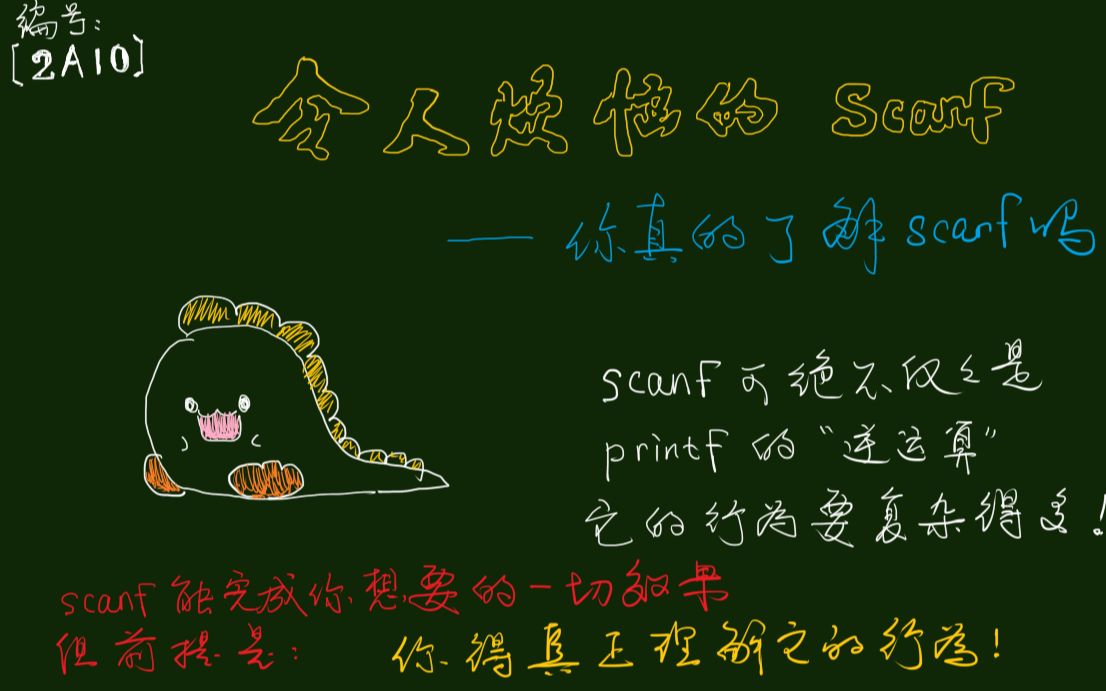 编号:
[2A10]
令人烦恼的 Scanf
—— 你真的了解scanf吗
scanf 可绝不仅仅是
printf 的“逆运算”
它的行为要复杂得多!
scanf 能完成你想要的一切效果
但前提是: 你得真正理解它的行为!